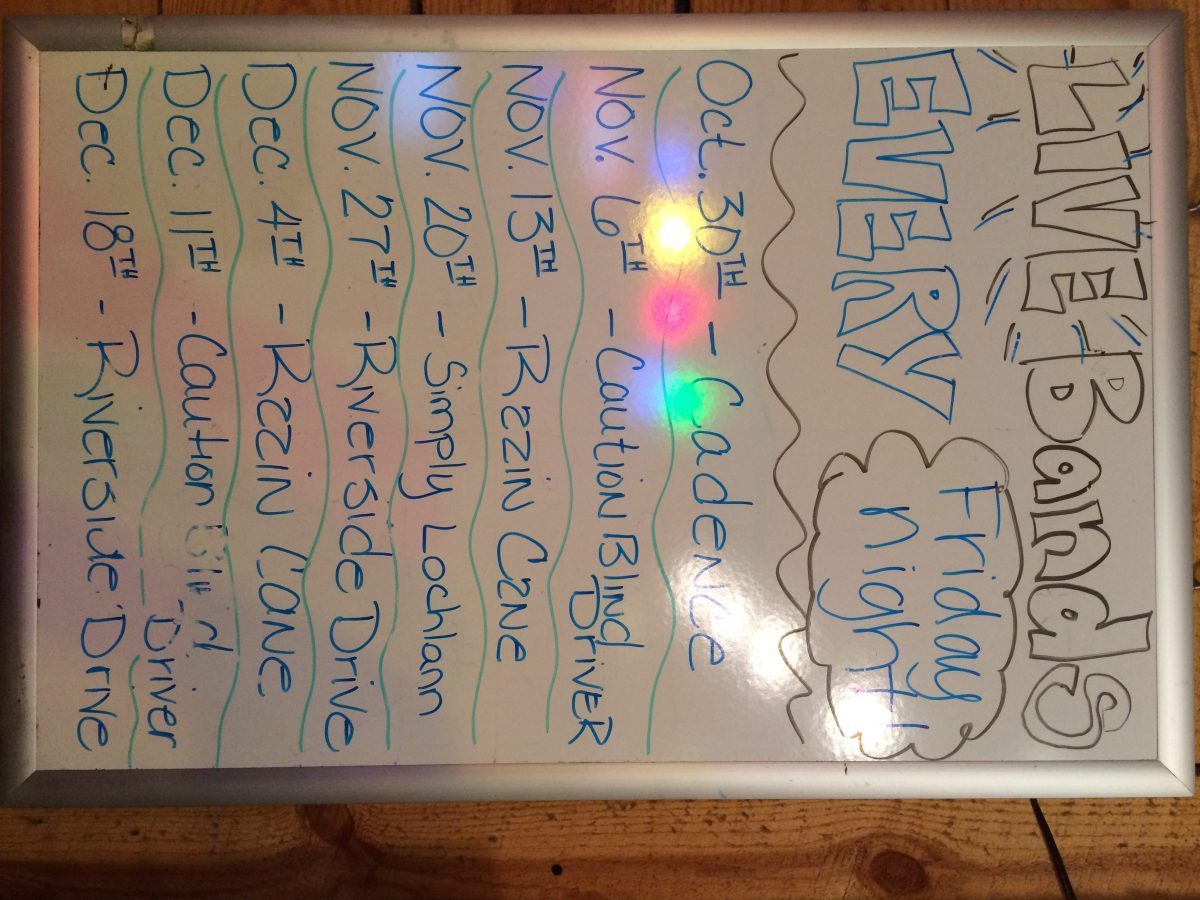 LIVE Bands
EVERY
Friday
night!
Oct. 30TH - Cadence
Nov. 6TH - Caution Blind
Driver
Nov. 13TH - Rzzin Cane
Nov. 20TH - Simply Lochlann
Nov. 27TH - Riverside Drive
Dec. 4TH - Rzzin Cane
Dec. 11TH - Caution Blind
Driver
Dec. 18TH - Riverside Drive